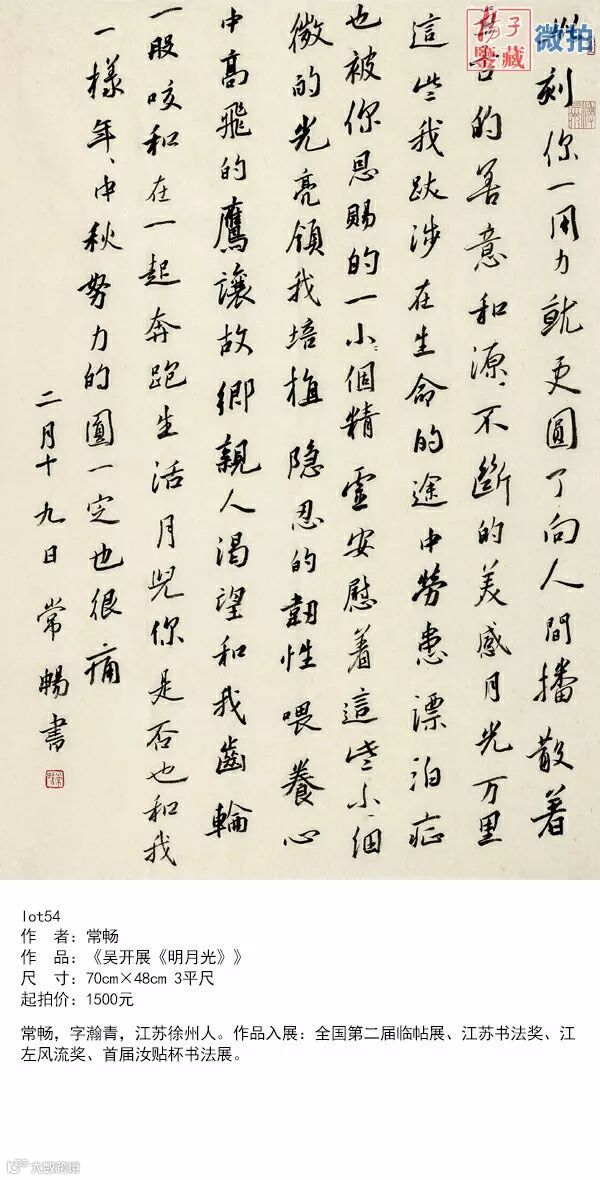 扬子鉴藏
微拍
此刻你一用力就更圆了向人間播散着
的善意和源不斷的美感月光万里
這些我跋涉在生命的途中勞患漂泊症
也被你恩賜的一小個精靈安慰着這些小個
微的光亮領我培植隐忍的韌性喂養心
中高飛的鷹讓故鄉親人渴望和我齒輪
一般咬和在一起奔跑生活月兒你是否也和我
一樣年中秋努力的圓一定也很痛
二月十九日常暢書
lot54
作 者:常畅
作 品:《吴开展《明月光》》
尺 寸:70cm×48cm 3平尺
起拍价:1500元
常畅,字瀚青,江苏徐州人。作品入展:全国第二届临帖展、江苏书法奖、江
左风流奖、首届汝贴杯书法展。
大鼓跨境